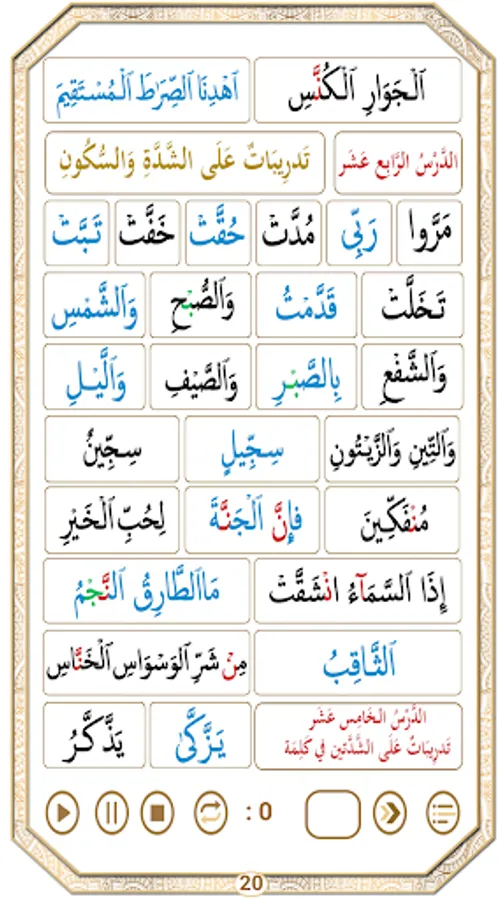 ٱلْجَوَارِ ٱلْكُنَّسِ ٱهْدِنَا ٱلصِّرَٰطَ ٱلْمُسْتَقِيمَ
الدَّرْسُ الرَّابِع عَشَر تَدرِيبَاتٌ عَلَى الشَّدَّةِ وَالسُّكُونِ
مَرَّوا رَبِّى مُدَّتْ حُقَّتْ خَفَّتْ تَبَّتْ
تَخَلَّتْ قَدَّمْتُ وَٱلصُّبْحِ وَٱلشَّمْسِ
وَٱلشَّفْعِ بِٱلصَّبْرِ وَٱلصَّيْفِ وَٱلَّيْلِ
وَٱلتِّينِ وَٱلزَّيْتُونِ سِجِّيلٍ سِجِّينٌ
مُنفَكِّينَ فَإِنَّ ٱلْجَنَّةَ لِحُبِّ ٱلْخَيْرِ
إِذَا ٱلسَّمَآءُ انْشَقَّتْ مَاٱلطَّارِقُ ٱلنَّجْمُ
ٱلثَّاقِبُ مِنْ شَرِّ ٱلْوَسْوَاسِ ٱلْخَنَّاسِ
الدَّرْسُ الخَامِس عَشَر
تَدرِيبَاتٌ عَلَى الشَّدَّتَين فِي كَلِمَة
يَزَّكَّىٰ يَذَّكَّرُ
: 0
20